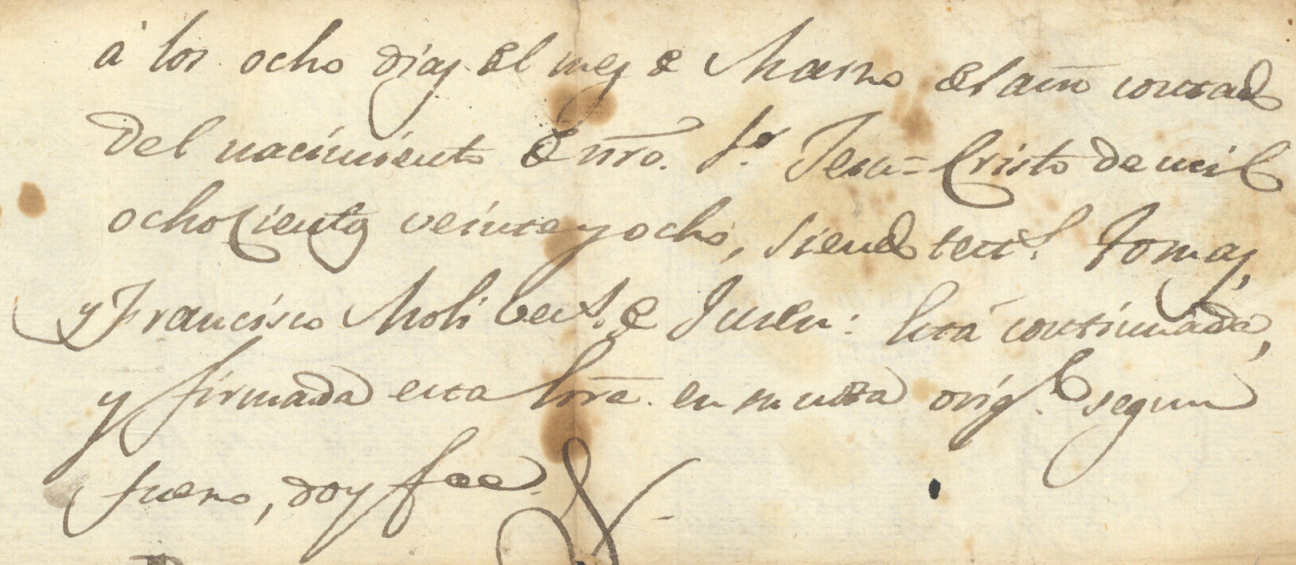 á los ocho dias del mes de Marzo del año contado
del nacimiento de nro. Sr. Jesu=Cristo de mil
ochocientos veinte y ocho, siendo test.s Tomas,
y Francisco Moli de : Está continuada,
y firmada esta en su nota orig.l segun
fuero, doy fee.